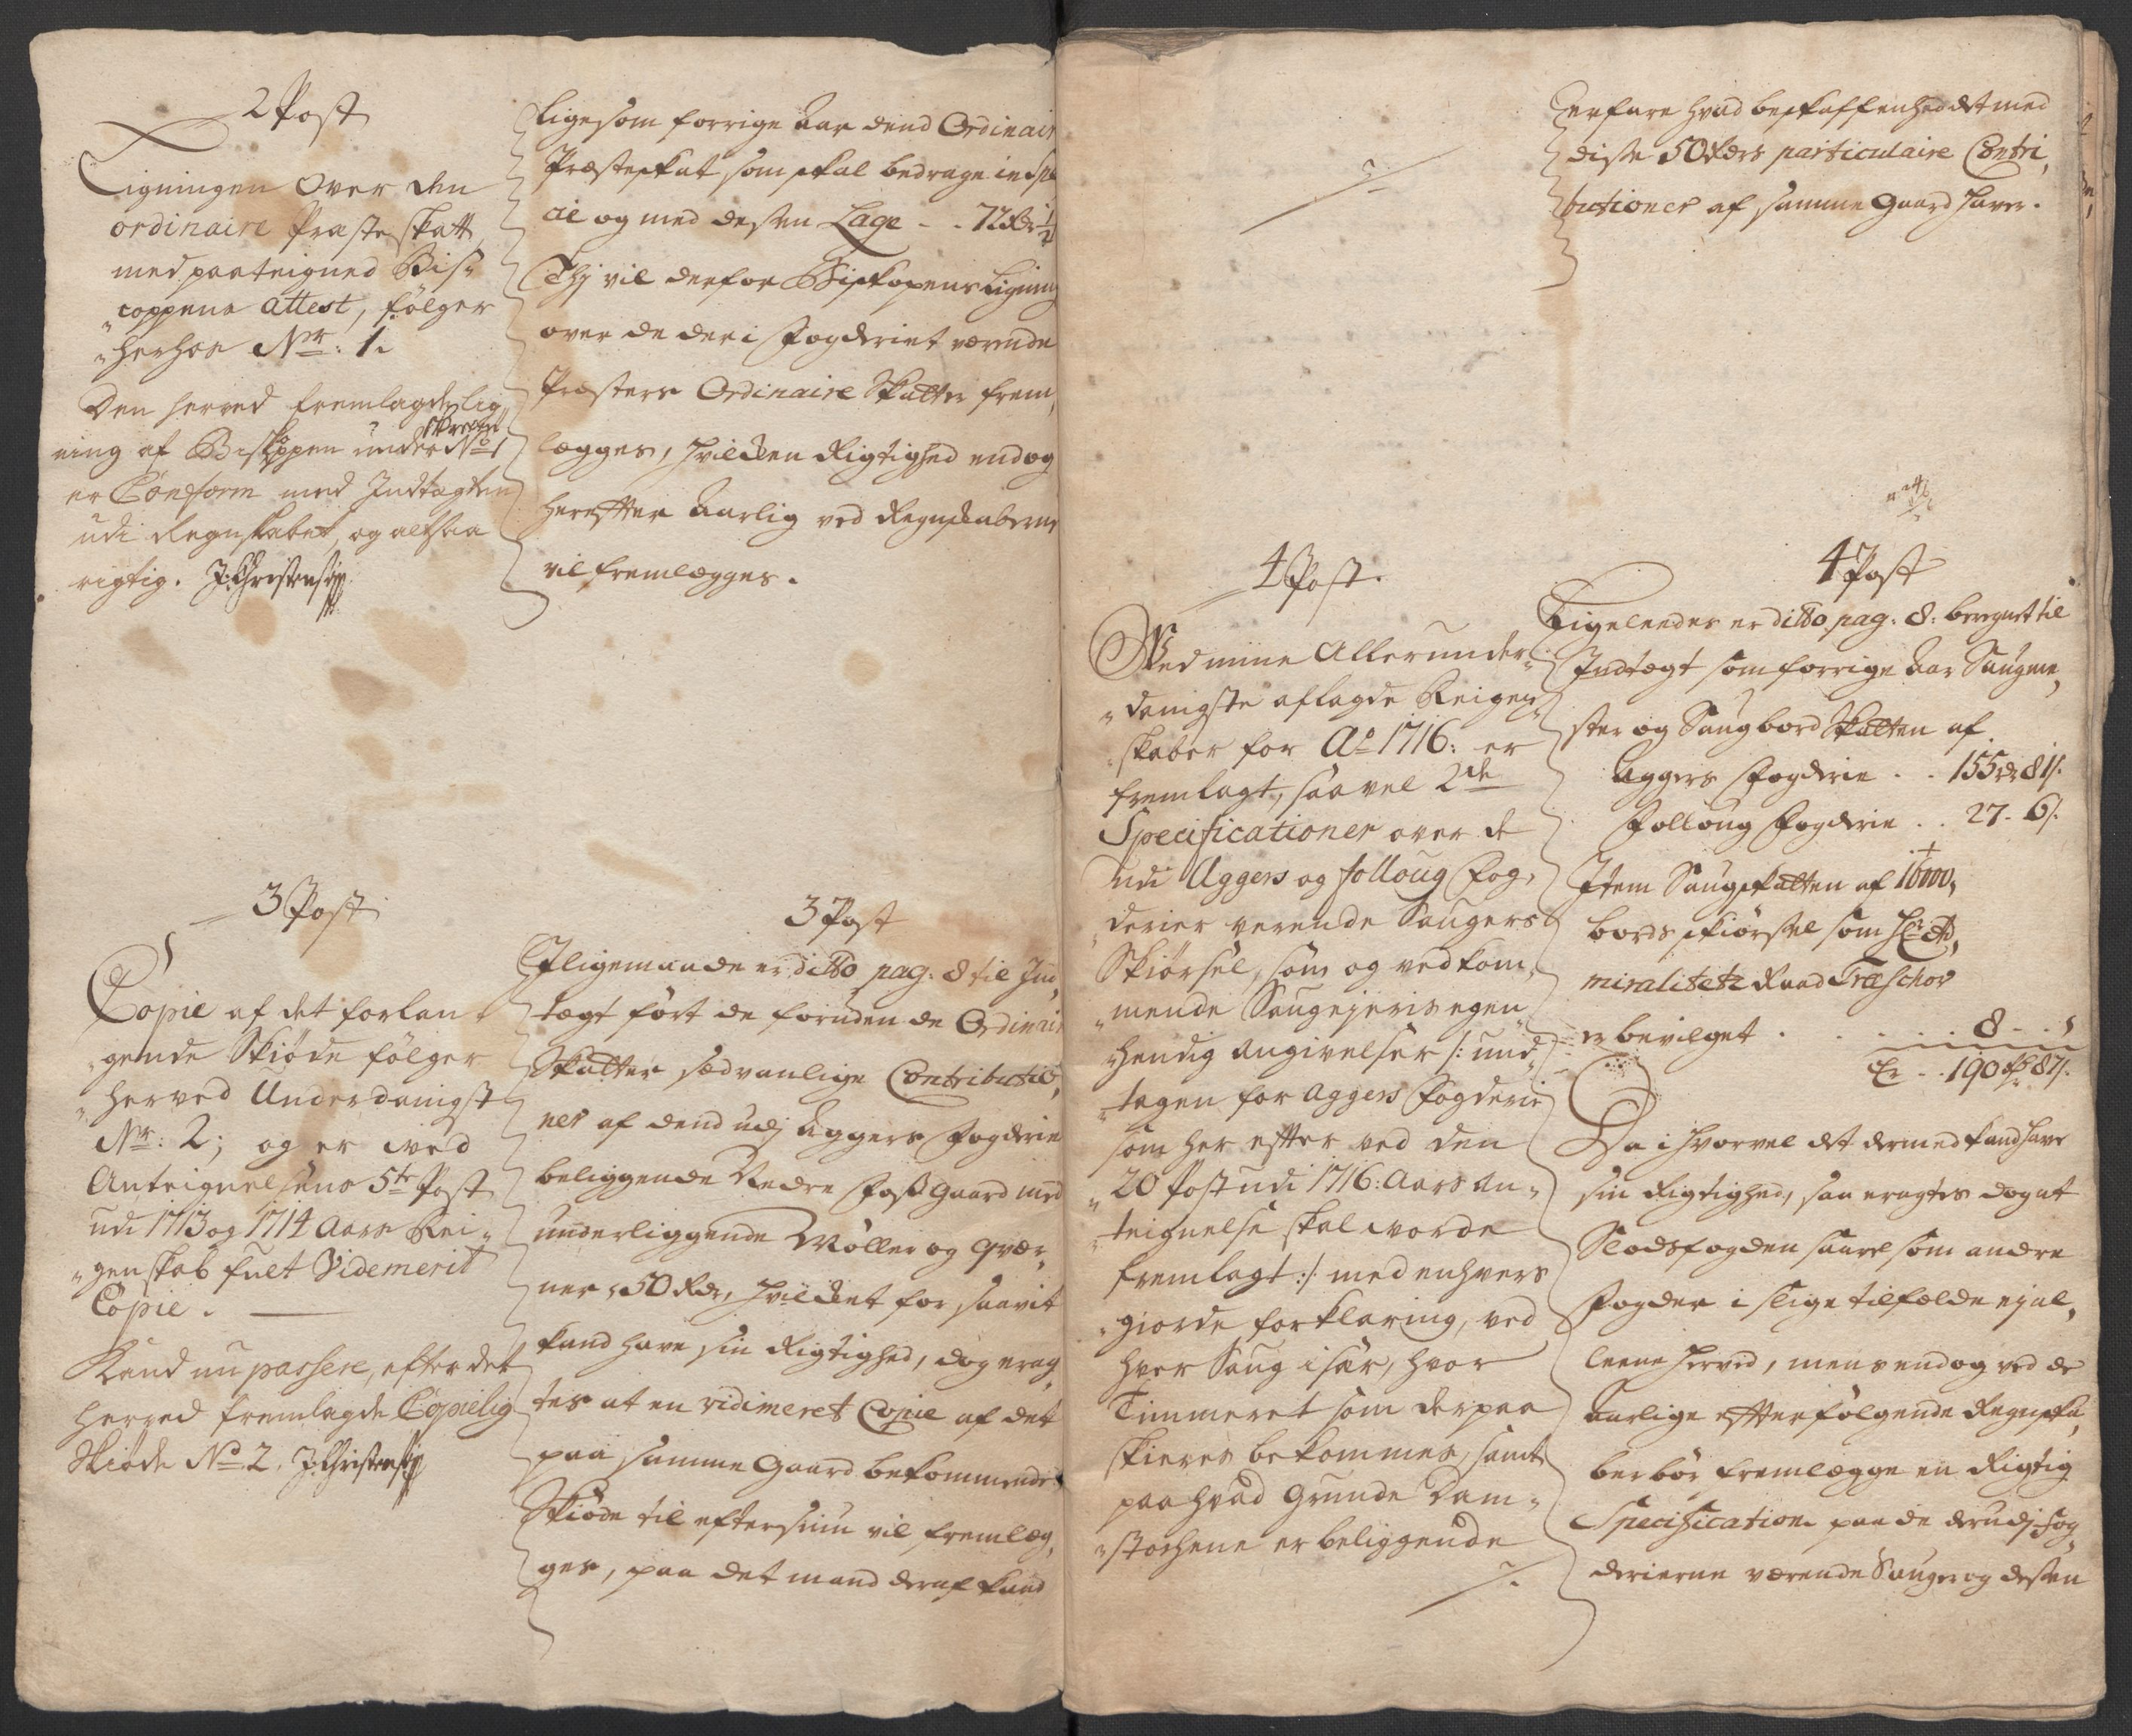 2 Post
Ligningen Over den
ordinaire Præste skatt
med paateigned Bis-
"coppens attest, følger
"herhos Nr: 1.
Den herved fremlagde Lig-
ning af Biskoppen under No 1
er Conform med Indtægten
udi Regnskabet, og altsaa
rigtig. J. Christensen
Ligesom forrige Aar dend Ordinair
Præsteskat som skal bedrage in Spe
cie og med dessen Lage - - 72 Rdr ½
Thj vil derfor Biskopens Ligning
over de der i Fogderiet værende
Præsters Ordinaire Skatter frem,
lægges, hvilken Rigtighed endog
herefter Aarlig ved Regnskaberne
vil fremlægges.
3 Post
Copie af det forlan-
"gende Skiøde følger
"herved Underdanigst
Nr: 2; og er ved
Anteignelsens 5te Post
udi 1713 og 1714 Aars Rei-
"genskab fult Videmerit
Copie.
Kand nu passere, efter det
herved fremlagde Copielig
Skiøde No 2. J. Christensen
3 Post
Iligemaade er ditto pag: 8 til Ind,
tægt ført de foruden de Ordinair
Skatter sædvanlige Contributio,
ner af dend udj Aggers Fogderie
beliggende Nedre Foss Gaard med
underliggende Møller og Qvær,
ner 50 Rdr, hvilket for saavit
kand have sin Rigtighed, dog erag,
tes at en vidimeret Copie af det
paa samme Gaard bekommende
Skiøde til eftersiun vil fremlæg,
ges, paa det mand deraf kand
erfare hvad beskaffenhed det med
disse 50 Rdrs particulaire Contri,
butioner af samme Gaard haver.
4 Post.
Ved mine Allerunder-
"danigste aflagde Reigen-
"skaber for Ao 1716: er
fremlagt, saavel 2de
Specificationer over de
udi Aggers og Folloug Fog-
"derier verende Saugers
Skiørsel, som og vedkom-
"mende Saugejeris egen
"hendig Angivelser /: und-
"tagen for Aggers Fogderie
som her effter ved den
"20 Post udi 1716: Aars An-
"teignelse skal vorde
fremlagt :/ med enhvers
"giorde forklaring, ved
hver Saug især, hvor
Timmeret som derpaa
skieres bekommes, samt
paa hvad Grunde Dam-
"stochene er beliggende
4 Post
Ligeleedes er ditto pag: 8: beregnet til
Indtægt som forrige Aar Saugme,
ster og Saugbord Skatten af
Aggers Fogderie - - 155 rdr 81 s.
Folloug Fogderie - - 27 - 6 s.
Item Saugskatten af 1600,
bords skiørsel som Hr Ad,
miralitets Raad Treschow
er bevilget - - - - 8 - -
Er - - 190 rdr 87 s.
Da i hvorvel det dermed kand have
sin Rigtighed, saa eragtes dog at
Slodsfogden saavel som andre
Fogder i slige tilfælde ej al,
leene herved, mens endog ved de
Aarlige effterfølgende Regnska,
ber bør fremlægge en Rigtig
Specification paa de derudj Fog,
derierne værende Sauger og dessen